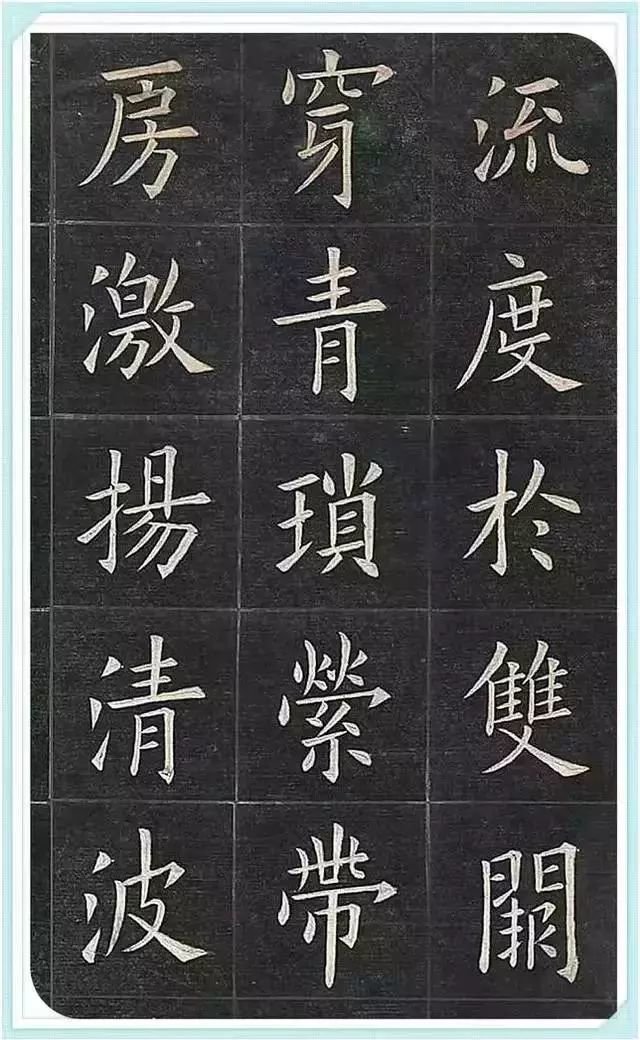 流度於雙闕
穿青瑣縈帶
房激揚清波